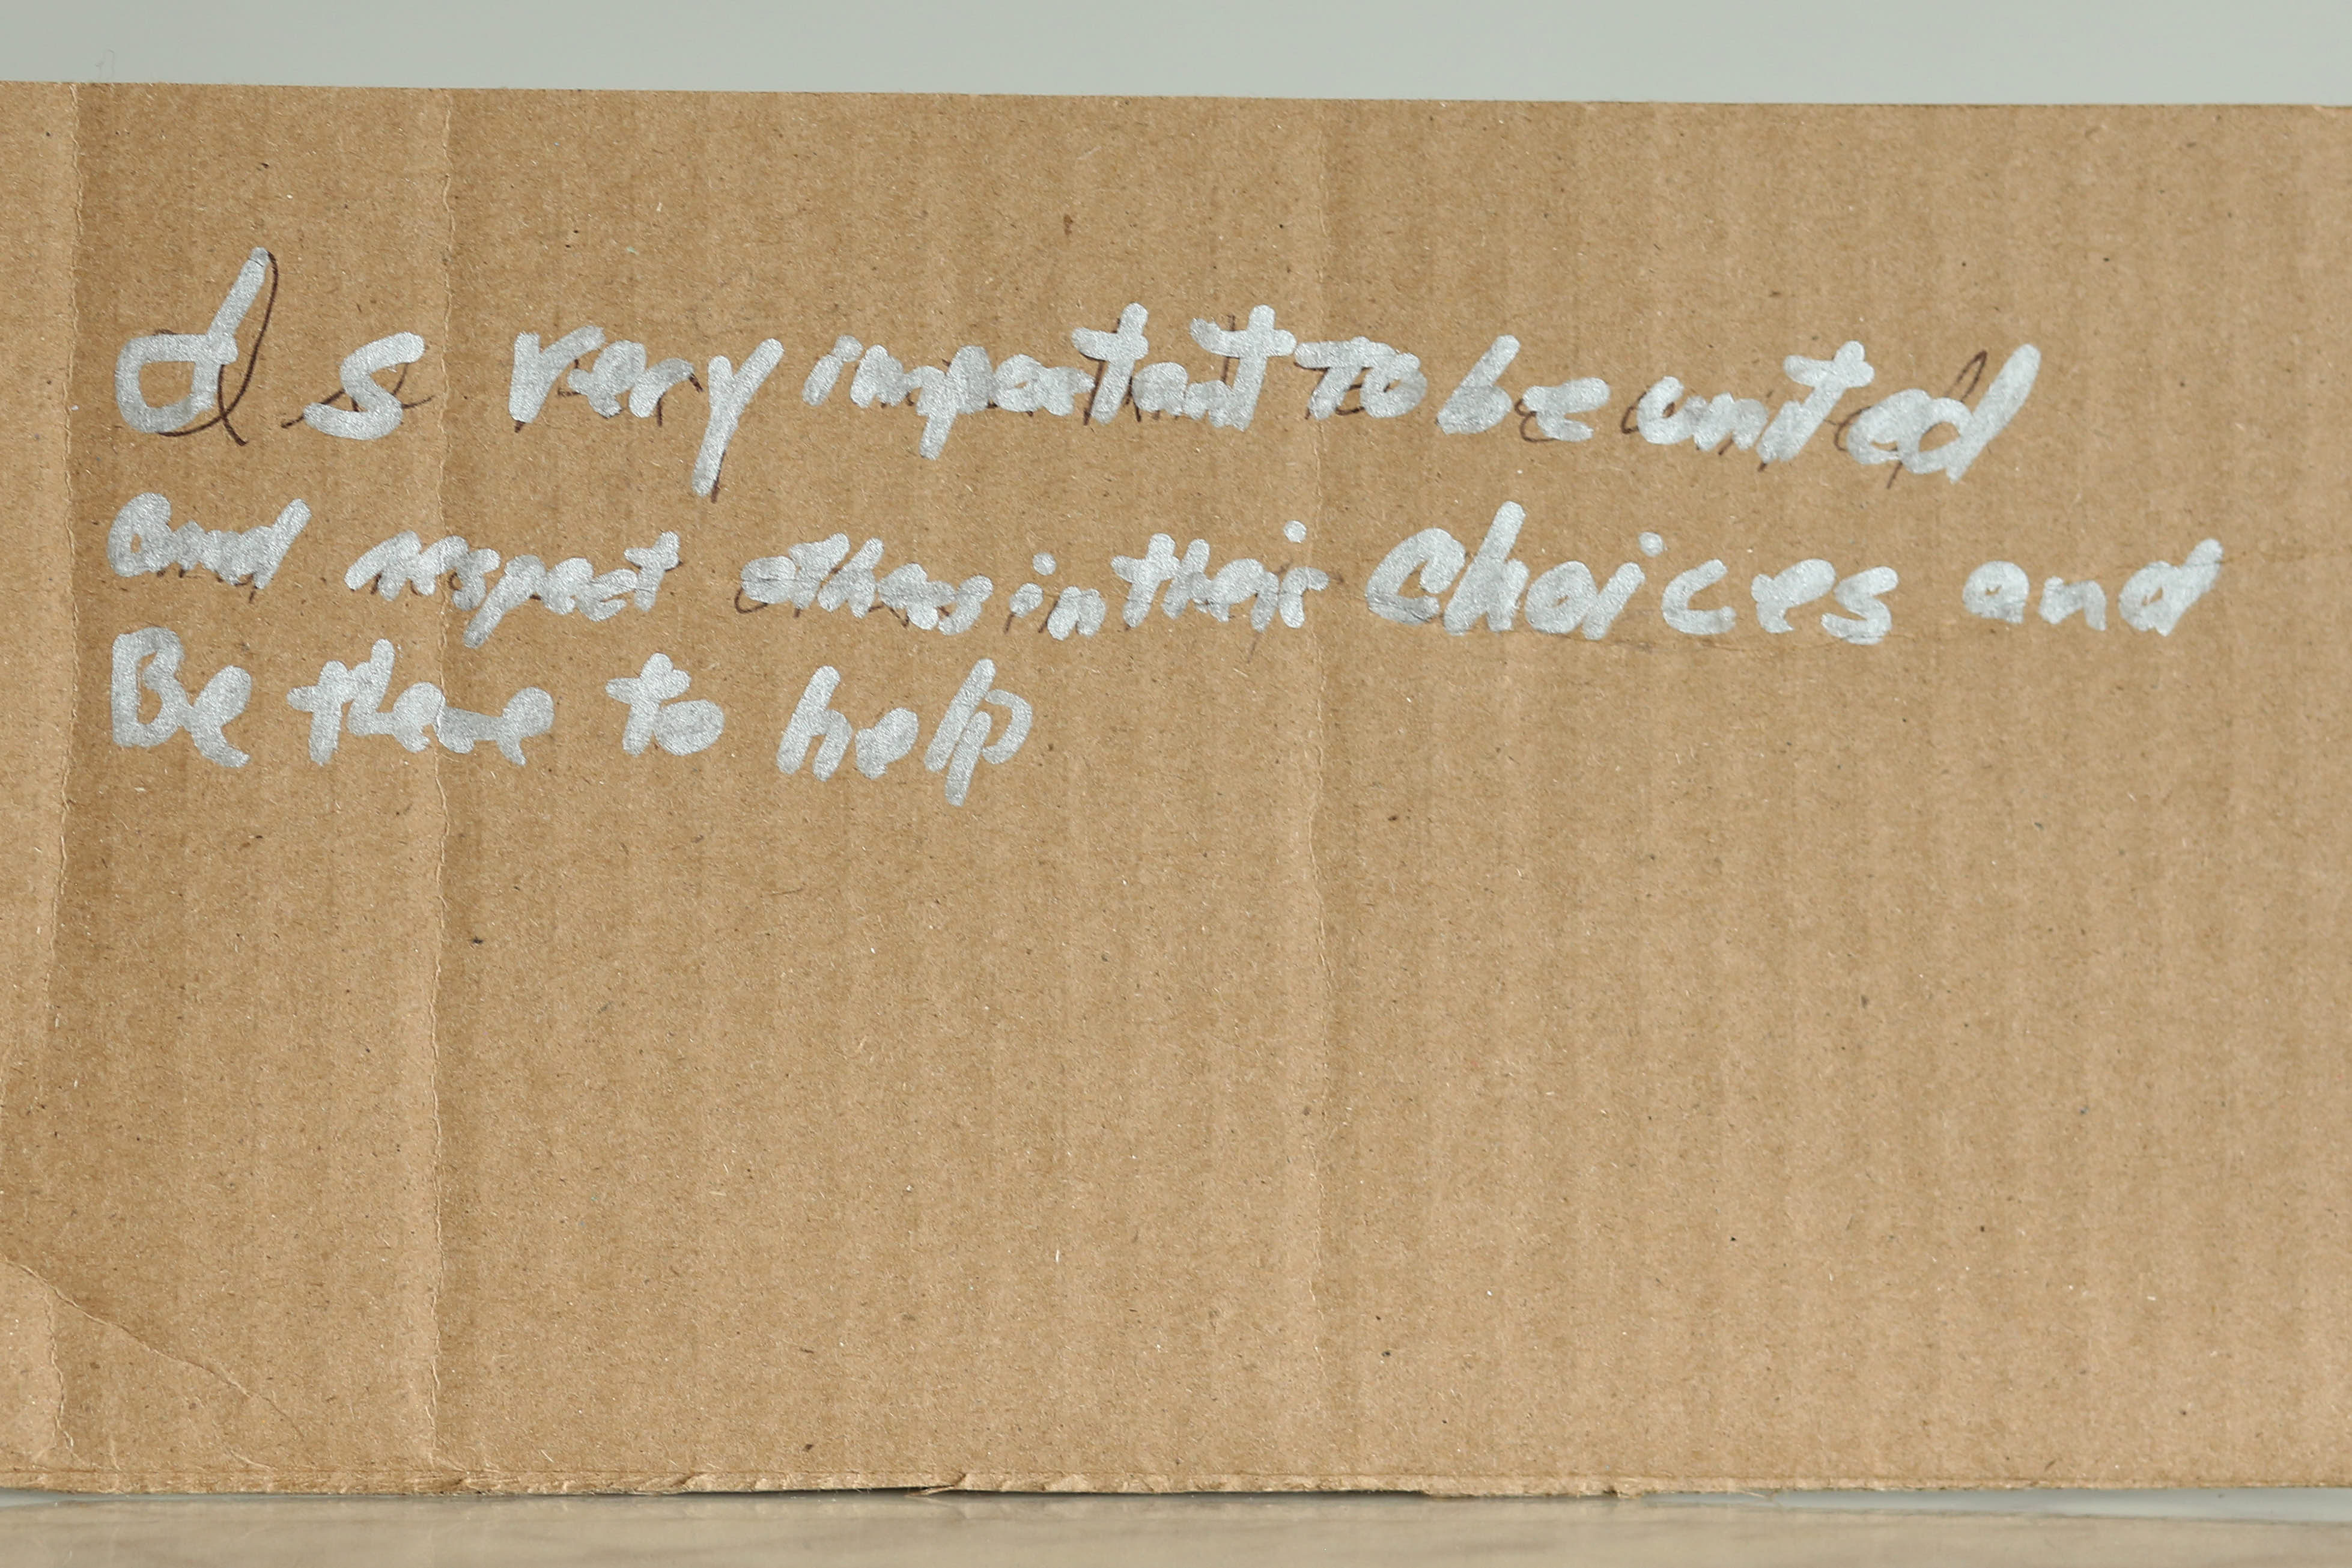 Is very important To be united
and respect others in their Choices and
Be there to help